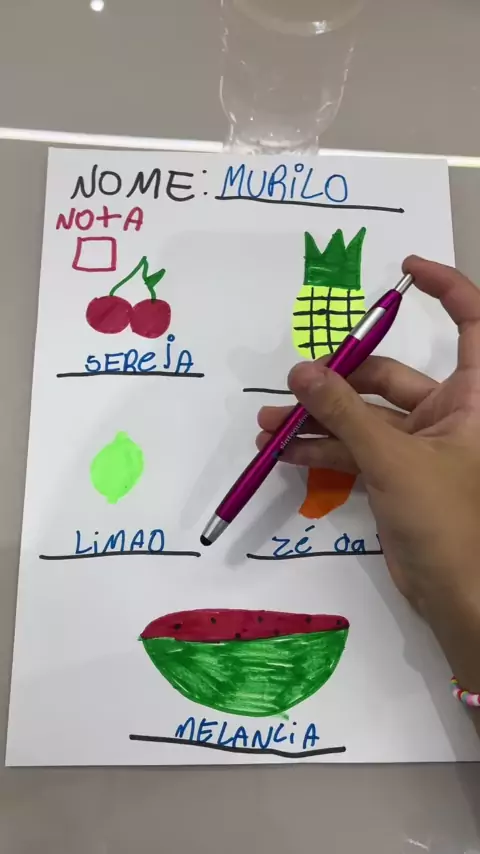 NOME: MURILO
NOTA
SEREJA
LIMAO
zé da
MELANCIA